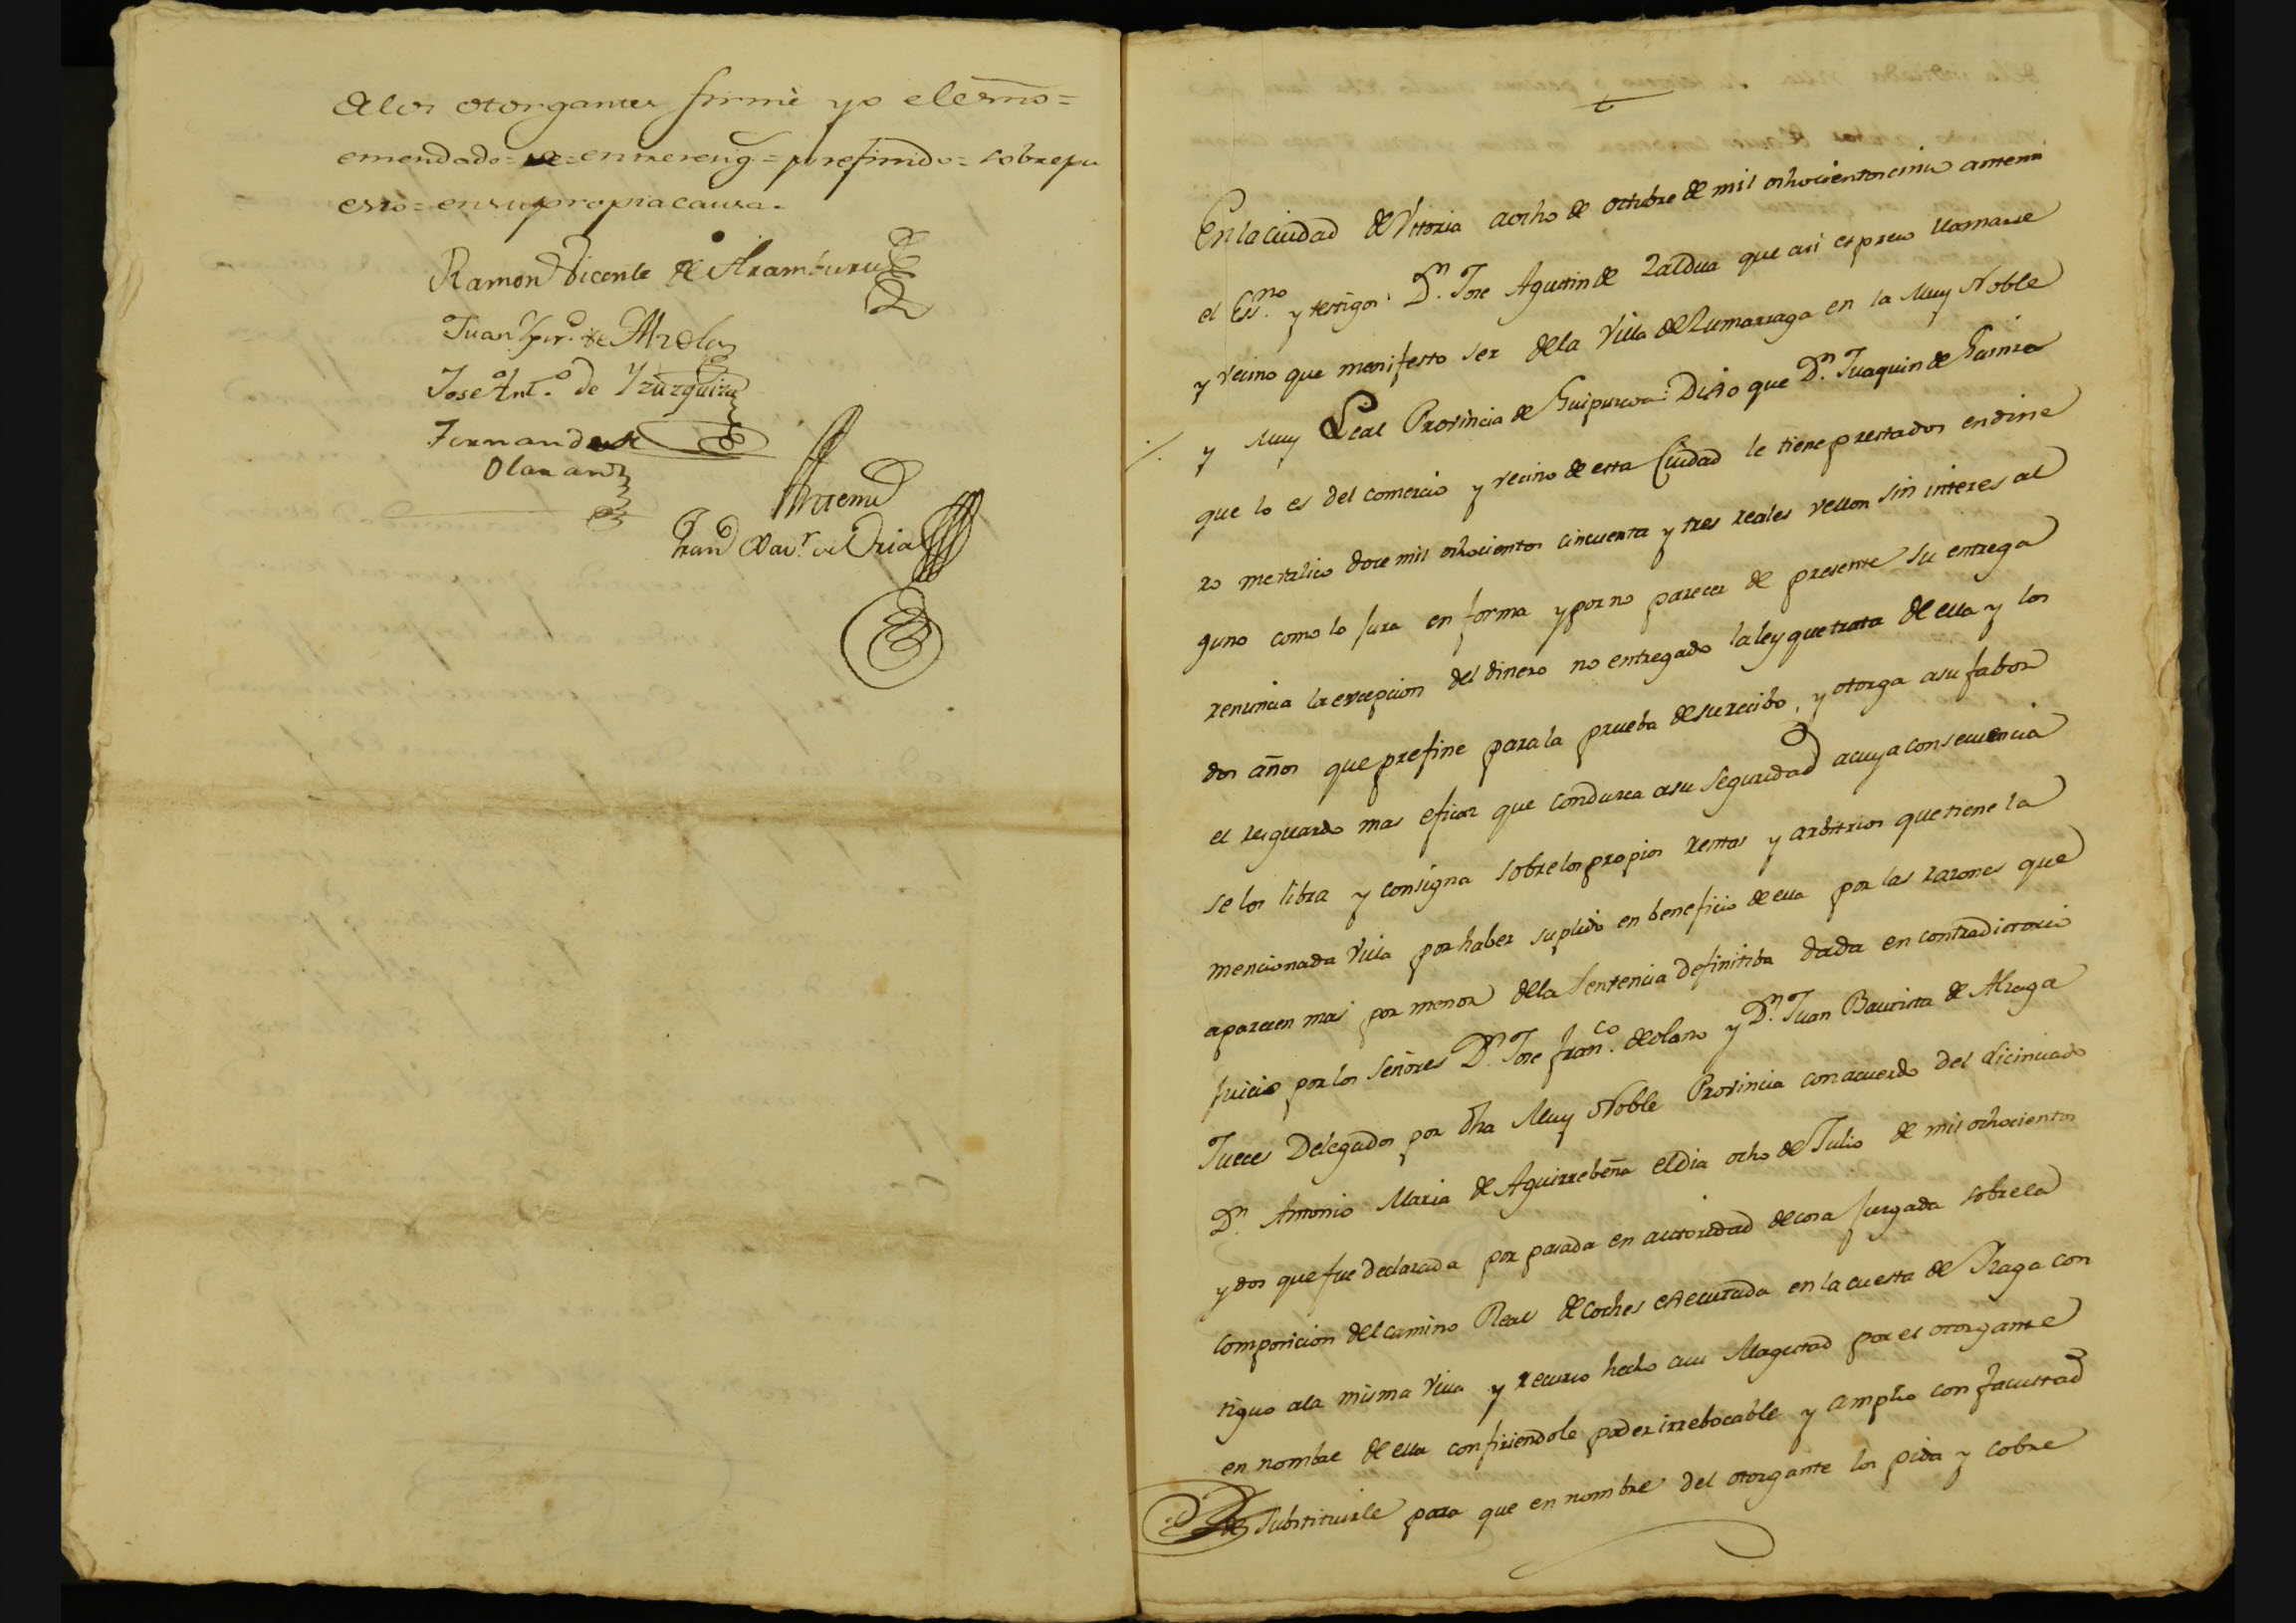 a los otorgantes firmè yo el esno=
emendado=se=entrereng.=prefinido=sobrepu
esto=en su propia causa.
Ramon Vicente de Aramburu
Juan de Alzola
Jose Antº. de Yzuzquiza
Fernando de
Olaran
Antemi
Franº Xavr. de Oria
t
En la ciudad de Vitoria a ocho de octubre de mil ochocientos cinco antemi
el Essno. y testigos Dn. Jose Agustin de Zaldua que asi expreso llamarse
y vecino que manifesto ser de la Villa de Zumarraga en la Muy Noble
y Muy Leal Provincia de Guipuzcoa: Dixo que Dn. Juaquin de
que lo es del comercio y vecino de esta Ciudad le tiene prestados en dine
ro metalico doce mil ochocientos cincuenta y tres reales vellon sin interes al
guno como lo jura en forma y por no parecer de presente su entrega
renuncia la excepcion del dinero no entregado la ley que trata de ella y los
dos años que prefine para la prueba de su recibo, y otorga a su fabor
el resguardo mas eficaz que conduzca a su seguridad a cuya consecuencia
se los libra y consigna sobre los propios rentas y arbitrios que tiene la
mencionada Villa por haber suplido en beneficio de ella por las razones que
aparecen mas por menor de la Sentencia definitiba dada en contradictorio
juicio por los Señores Dn. Jose Franco. de Olano y Dn. Juan Bautista de Alzaga
Jueces Delegados por dha Muy Noble Provincia con acuerdo del licenciado
Dn. Antonio Maria de Aguirrebeña el dia ocho de Julio de mil ochocientos
y dos que fue declarada por pasada en autoridad de cosa juzgada sobre la
composicion del camino Real de coches executada en la cuesta de Yraga con
tiguo a la misma Villa y recurso hecho a su Magestad por el otorgante
en nombre de ella confiriendole poder irrebocable y amplio con facultad
de substituirle para que en nombre del otorgante los pida y cobre